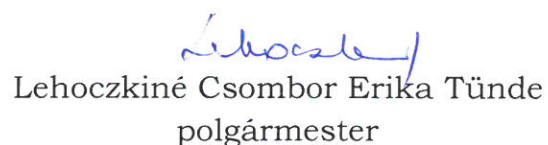 Lehoczkiné Csombor Erika Tünde
polgármester